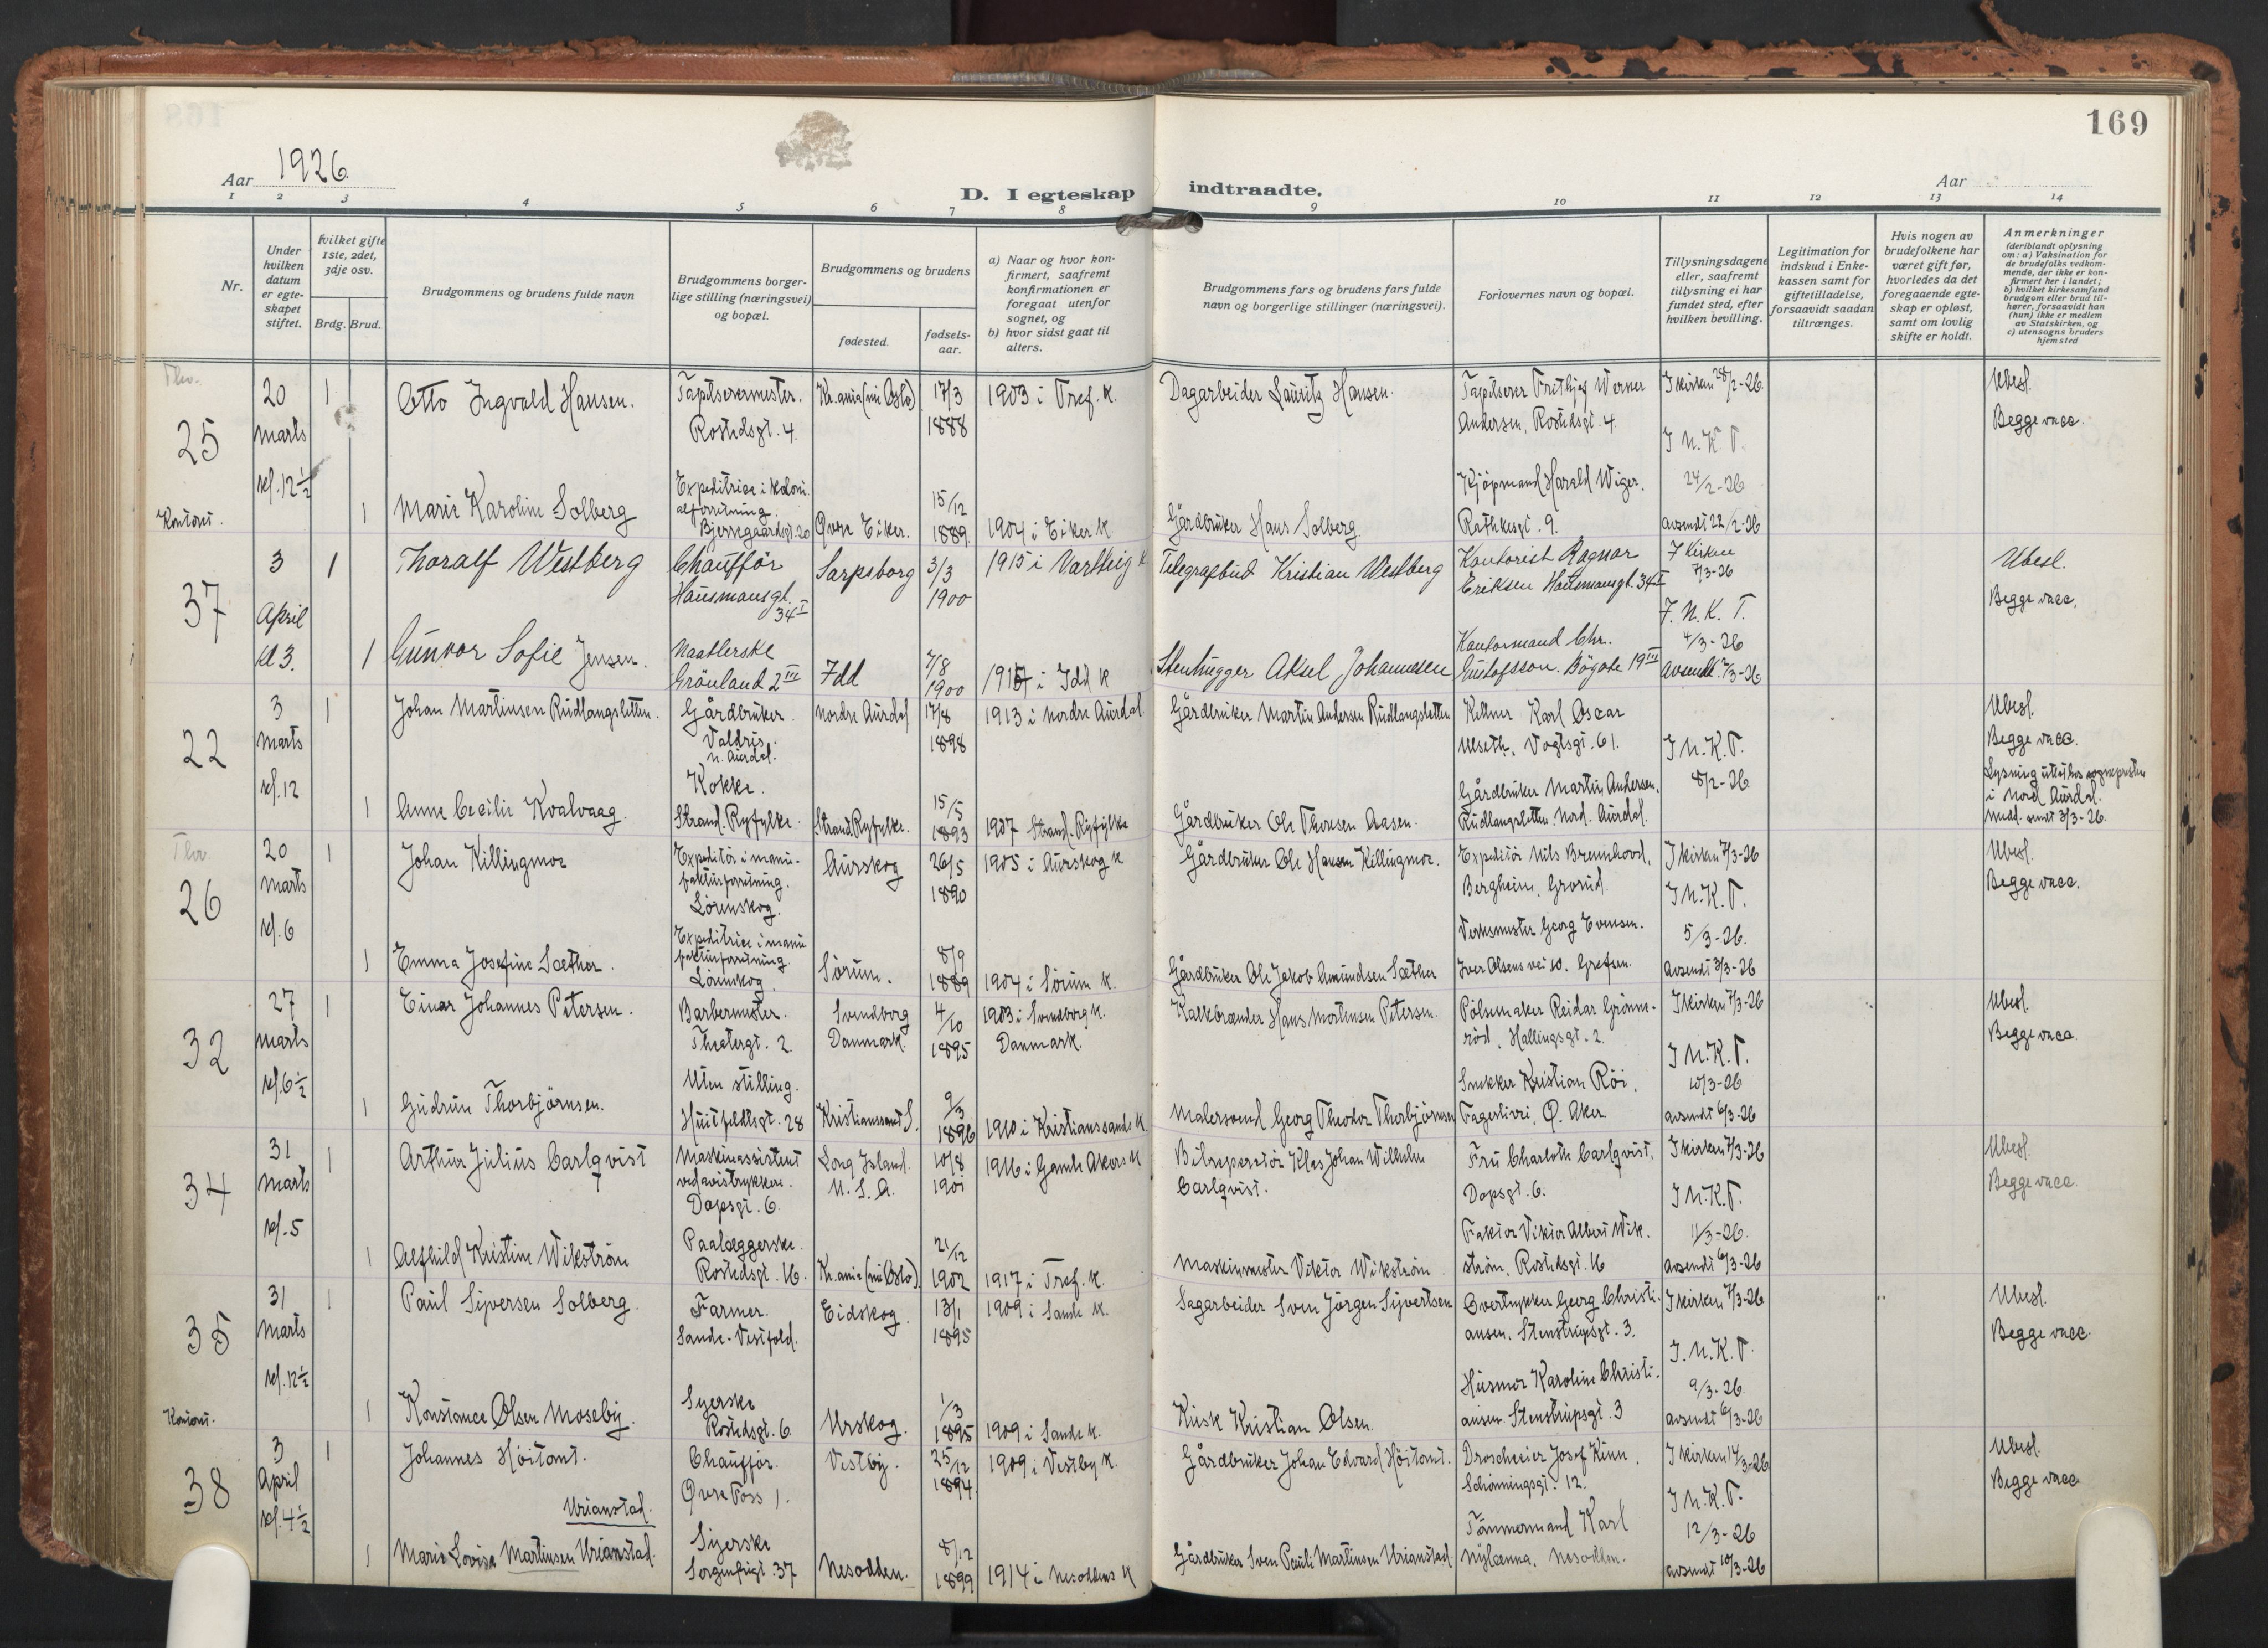 169
Aar 1926
D. I egteskap indtraadte.
Aar
1 2 3 4 5 6 7 8 9 10 11 12 13 14
Nr.
Under hvilken datum er egteskapet stiftet.
Hvilket gifte 1ste, 2det, 3dje osv.
Brdg. Brud.
Brudgommens og brudens fulde navn
Brudgommens borgerlige stilling (næringsvei) og bopæl.
Brudgommens og brudens
fødested.
fødselsaar.
a) Naar og hvor konfirmert, saafremt konfirmationen er foregaat utenfor sognet, og
b) hvor sidst gaat til alters.
Brudgommens fars og brudens fars fulde navn og borgerlige stillinger (næringsvei).
Forlovernes navn og bopæl.
Tillysningsdagene eller, saafremt tillysning ei har fundet sted, efter hvilken bevilling.
Legitimation for indskud i Enkekassen samt for giftetilladelse, forsaavidt saadan tiltrænges.
Hvis nogen av brudefolkene har været gift før, hvorledes da det foregaaende egteskap er opløst, samt om lovlig skifte er holdt.
Anmerkninger
(deriblandt oplysning om: a) Vaksination for de brudefolks vedkommende, der ikke er konfirmert her i landet; b) hvilket kirkesamfund brudgom eller brud tilhører, forsaavidt han (hun) ikke er medlem av Statskirken, og c) utensogns bruders hjemsted
25
20 marts kl. 12½
Kontoret.
1 Otto Ingvald Hansen.
Tapetserermester. Rostedsgt. 4.
Kr.ania (nu Oslo)
17/3 1888
1903 i Tref. K.
Dagarbeider Lauritz Hansen.
Tapetserer Frithjof Werner Andersen, Rostedsgt. 4.
I kirken 28/2-26.
I N.K.T. 24/2-26
avsendt 22/2-26
Ubesl.
Begge vacc.
1 Marie Karoline Solberg
Expeditrice i kolonialforretning. Bjerregaardsgt. 20
Øvre Eiker.
15/12 1889
1904 i Eiker K.
Gårdbruker Hans Solberg.
Kjøpmand Harald Wiger. Rathkesgt. 9.
37
3 April kl 3.
1 Thoralf Westberg
Chauffør Hausmansgt. 34 I
Sarpsborg
3/3 1900
1915 i Varteig K
Telegrafbud Kristian Westberg
Kontorist Ragnar Eriksen Hausmansgt. 34 I
I Kirken 7/3-26
I. N. K. T. 4/3-26
Avsendt 2/3-26
Ubesl.
Begge vacc.
1 Gunvor Sofie Jensen.
Naatlerske Grönland 2 III
Idd
7/8 1900
1915 i Idd K
Stenhugger Aksel Johannesen
Kontormand Chr. Gustafsson. Bögate 19 III
22
3 marts kl. 12
1 Johan Martinsen Rudlangsletten.
Gårdbruker. Valdris. n. Aurdal.
Nordre Aurdal
17/8 1898
1913 i Nordre Aurdal
Gårdbruker Martin Andersen Rudlangsletten
Kellner Karl Oscar Ulseth. Vogtsgt. 61.
I N.K.T. 8/2-26
Ubesl.
Begge vacc.
1 Anne Cecilie Kvalvaag.
Kokke. Strand. Ryfylke.
Strand Ryfylke.
15/5 1893
1907 Strand. Ryfylke
Gårdbruker Ole Thorsen Aasen.
Gårdbruker Martin Andersen. Rudlangsletten. Nord. Aurdal.
i Nord Aurdal.
26
20 marts kl. 6
1 Johan Killingmo
Expeditör i manufakturforretning. Lørenskog.
Aurskog
26/5 1890
1905 i Aurskog K.
Gårdbruker Ole Hansen Killingmo.
Expeditör Nils Brennhovd, Bergheim, Grorud.
I kirken 7/3-26
I N.K.T. 5/3-26.
avsendt 3/3-26
Ubesl.
Begge vacc.
1 Emma Josefine Sæther.
Expeditrice i manufakturforretning. Lørenskog.
Sørum.
8/9 1889
1904 i Sørum K.
Gårdbruker Ole Jakob Amundsen Sæther
Verksmester Georg Evensen. Iver Olsens vei 10. Grefsen.
32
27 marts kl. 6½
1 Einar Johannes Petersen.
Barbermester. Theatergt. 2.
Svendborg Danmark.
4/10 1895
1903 i Svendborg K. Danmark.
Kalkbrænder Hans Mortensen Petersen.
Pölsemaker Reidar Grönneröd, Hallingsgt. 2.
I kirken 7/3-26
I N.K.T. 10/3-26
avsendt 6/3-26
Ubesl.
Begge vacc.
1 Gudrun Thorbjörnsen.
Uten stilling. Huitfeldtsgt. 28
Kristianssand S.
9/3 1896
1910 i Kristianssands K.
Malersvend Georg Theodor Thorbjörnsen
Snekker Kristian Röi. Fagerlivei, Ø. Aker
34
31 marts kl. 5
1 Arthur Julius Carlqvist
Maskinassistent ved avistrykkeri. Dopsgt. 6.
Long Island. U. S. A.
10/8 1901
1916 i Gamle Akers K
Bilreparatör Klas Johan Wilhelm Carlqvist.
Fru Charlotte Carlqvist, Dopsgt. 6.
I kirken 7/3-26
I N.K.T. 11/3-26.
avsendt 6/3-26
Ubesl.
Begge vacc.
1 Alfhild Kristine Wikström
Paalæggerske. Rostedsgt. 16.
Kr.ania (nu Oslo)
21/12 1902
1917 i Tref. K.
Maskinmester Viktor Wikström.
Faktor Viktor Albert Wikström, Rostedsgt. 16
35
31 marts kl. 12½
Kontoret.
1 Paul Sijversen Solberg.
Farmer. Sande. Vestfold.
Eidskog.
13/1 1895
1909 i Sande K.
Sagarbeider Sven Jörgen Sijvertsen
Overtrykker Georg Christiansen, Stenstrupsgt. 3.
I kirken 7/3-26
I. N. K. T. 9/3-26.
avsendt 6/3-26
Ubesl.
Begge vacc.
1 Konstance Olsen Moseby.
Syerske Rostedsgt. 6
Urskog.
1/3 1895
1909 i Sande K.
Kusk Kristian Olsen.
Husmor Karoline Christiansen. Stenstrupsgt. 3
38
3 April kl. 4½
1 Johannes Höitomt.
Chauffør. Øvre Foss 1.
Vestby.
25/12 1894
1909 i Vestby K.
Gårdbruker Johan Edvard Höitomt.
Droscheeier Josef Kinn, Schönningsgt. 12.
I kirken 14/3-26
I N.K.T. 12/3-26
avsendt 10/3-26
Ubesl.
Begge vacc
Urianstad.
1 Marie Lovise Martinsen Urianstad.
Syerske Sorgenfrigt. 37
Nesodden.
8/12 1899
1914 i Nesoddens K
Gårdbruker Sven Pauli Martinsen Urianstad
Tömmermand Karl Nylænna, Nesodden.